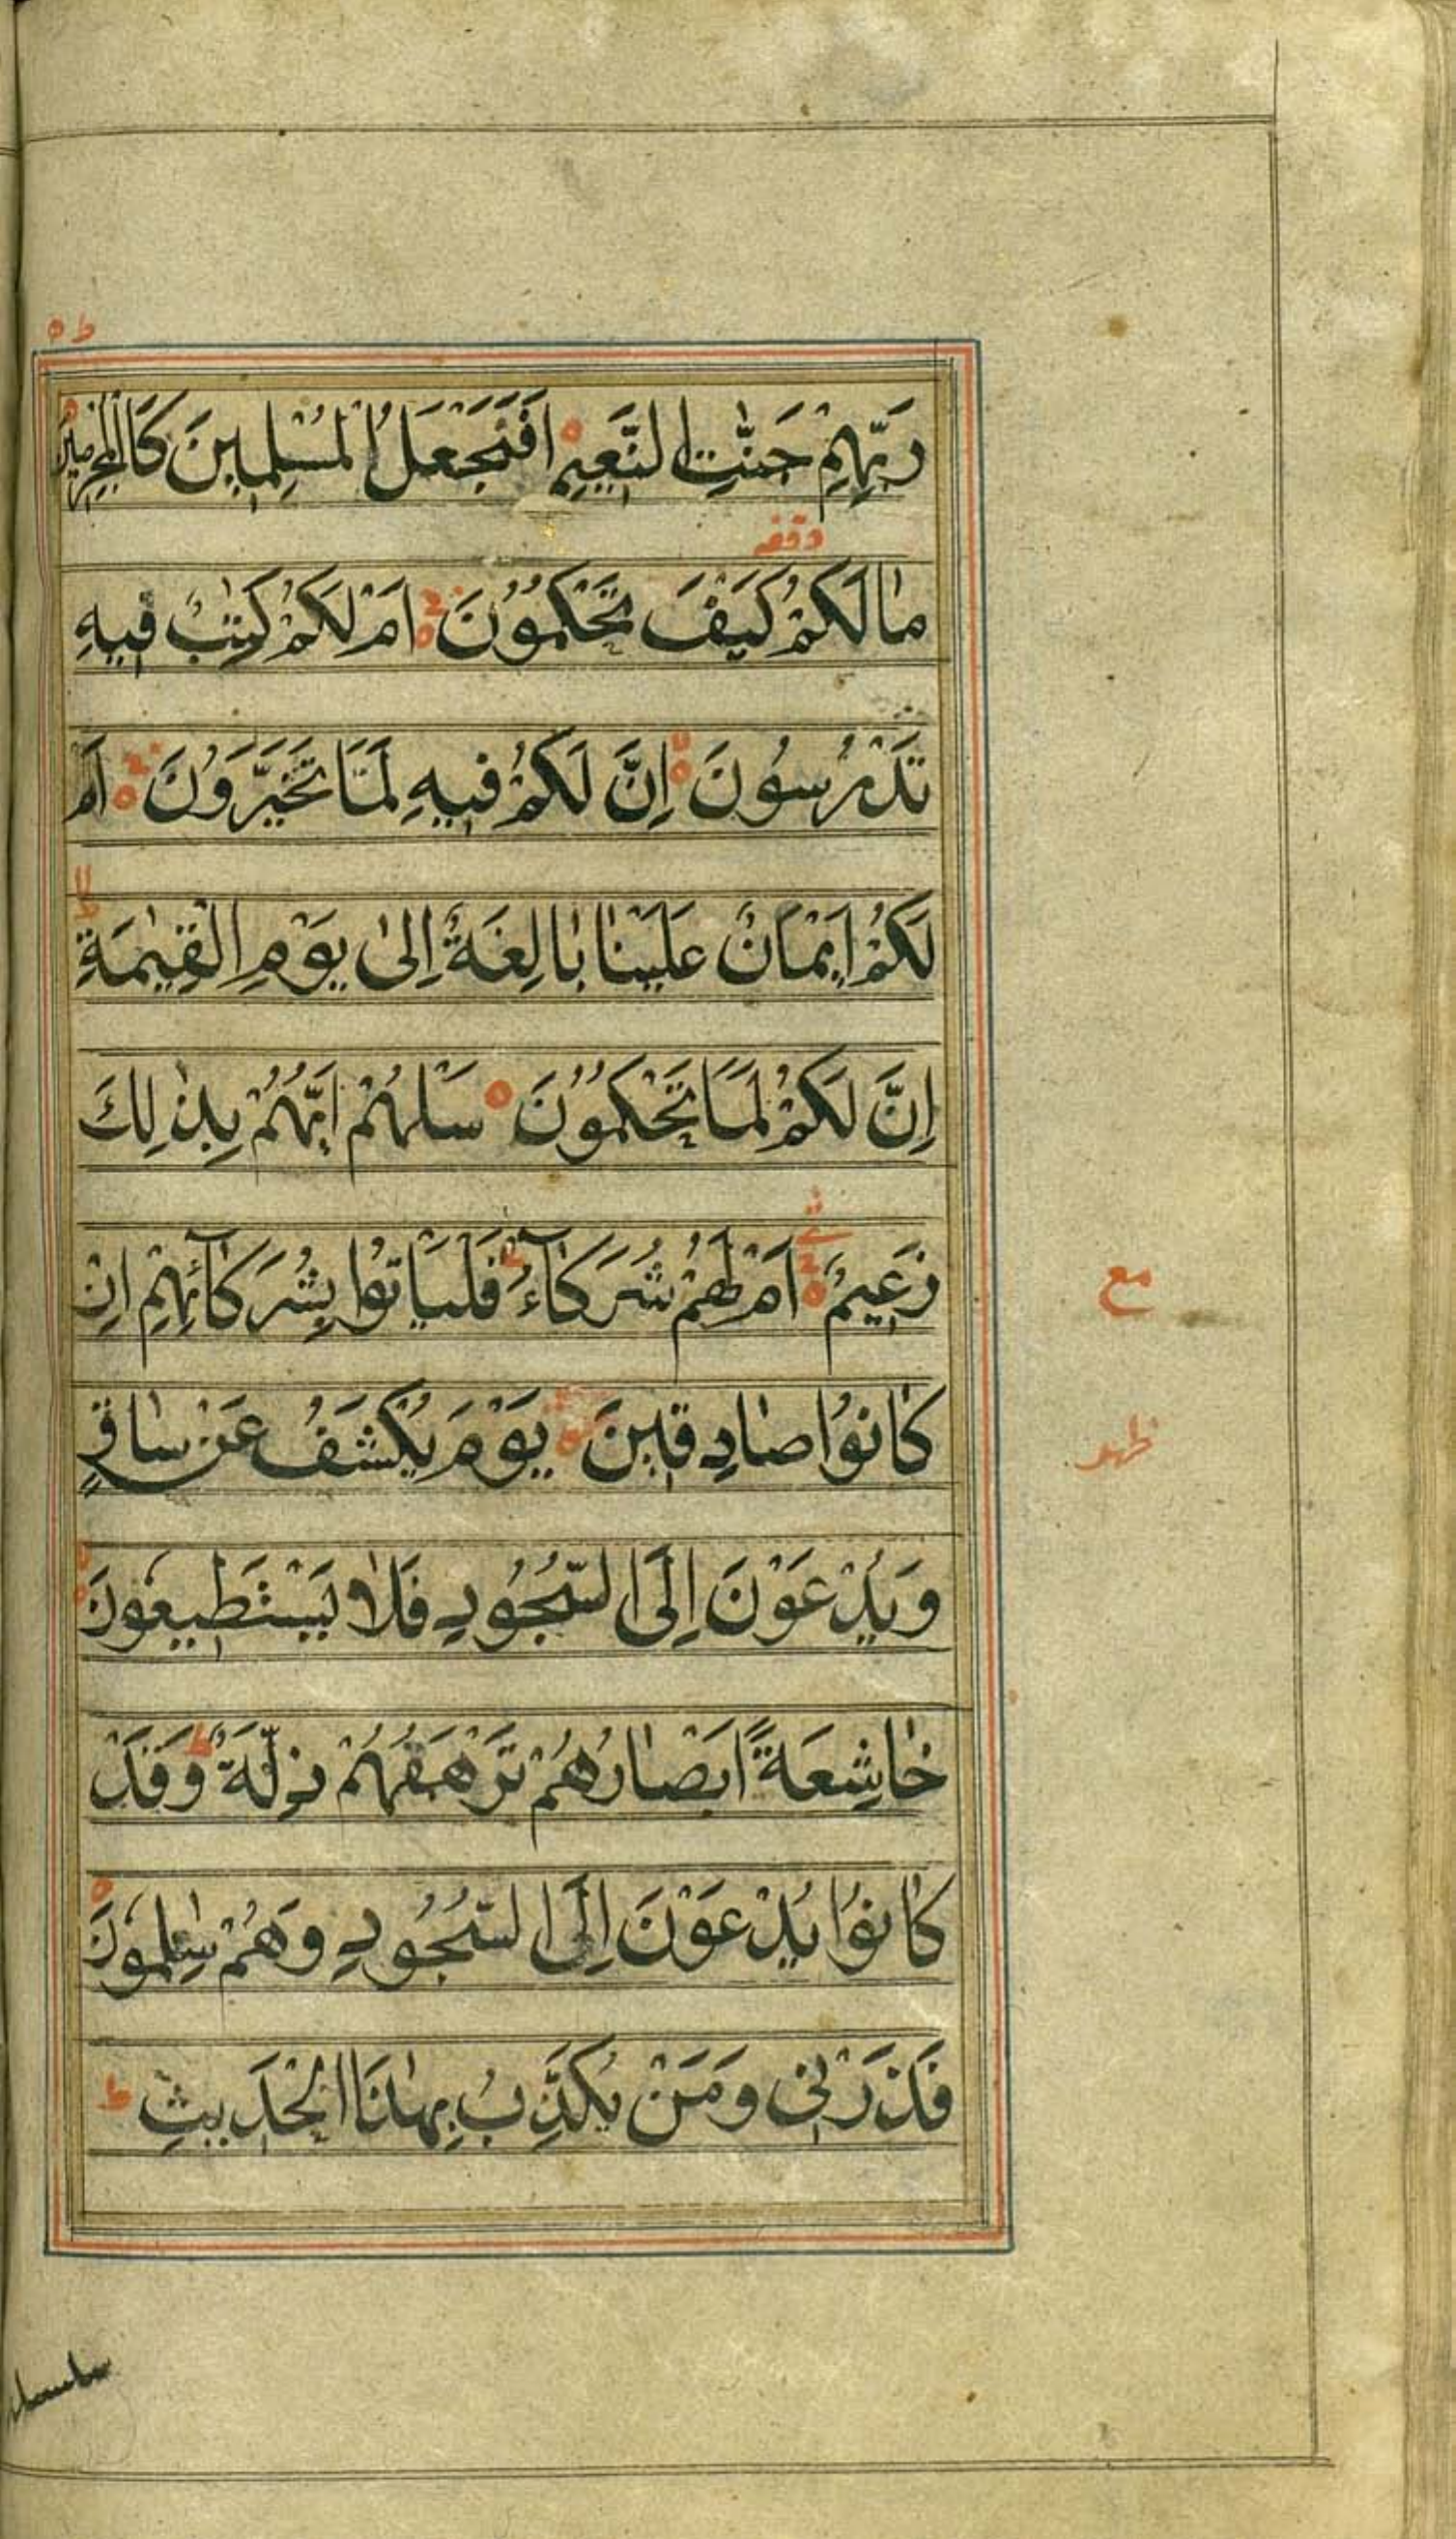 رَبِّهِمْ جَنّٰتِ النَّعِيمِ اَفَنَجْعَلُ الْمُسْلِمِينَ كَالْمُجْرِمِينَ
وقفه
مٰا لَكُمْ كَيْفَ تَحْكُمُونَ اَمْ لَكُمْ كِتٰبٌ فِيهِ
تَدْرُسُونَ اِنَّ لَكُمْ فِيهِ لَمَا تَخَيَّرُونَ اَمْ
لَكُمْ اَيْمَانٌ عَلَيْنٰا بٰالِغَةٌ اِلىٰ يَوْمِ الْقِيٰمَةِ
اِنَّ لَكُمْ لَمَا تَحْكُمُونَ سَلْهُمْ اَيُّهُمْ بِذٰلِكَ
زَعِيمٌ اَمْ لَهُمْ شُرَكٰآءُ فَلْيَاْتُوا بِشُرَكٰآئِهِمْ اِنْ
مع
كٰانُوا صٰادِقِينَ يَوْمَ يُكْشَفُ عَنْ سٰاقٍ
وَيُدْعَوْنَ اِلَى السُّجُودِ فَلٰا يَسْتَطِيعُونَ
خٰاشِعَةً اَبْصٰارُهُمْ تَرْهَقُهُمْ ذِلَّةٌ وَقَدْ
كٰانُوا يُدْعَوْنَ اِلَى السُّجُودِ وَهُمْ سٰلِمُونَ
فَذَرْنِي وَمَنْ يُكَذِّبُ بِهٰذَا الْحَدِيثِ ط